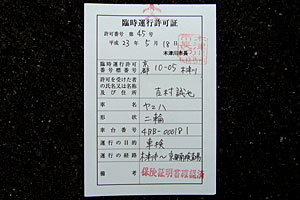 臨時運行許可証
許可番号 第 45 号
平成 23 年 5 月 18 日
木津川市長
臨時運行許可番号標番号 京都 10-05 木津川
許可を受けた者の氏名又は名称及び住所 吉村誠也
車名 ヤマハ
形状 二輪
車台番号 4BB-000181
運行の目的 車検
運行の経路 木津川市〜京都南陸運局
備考 保険証明書確認済